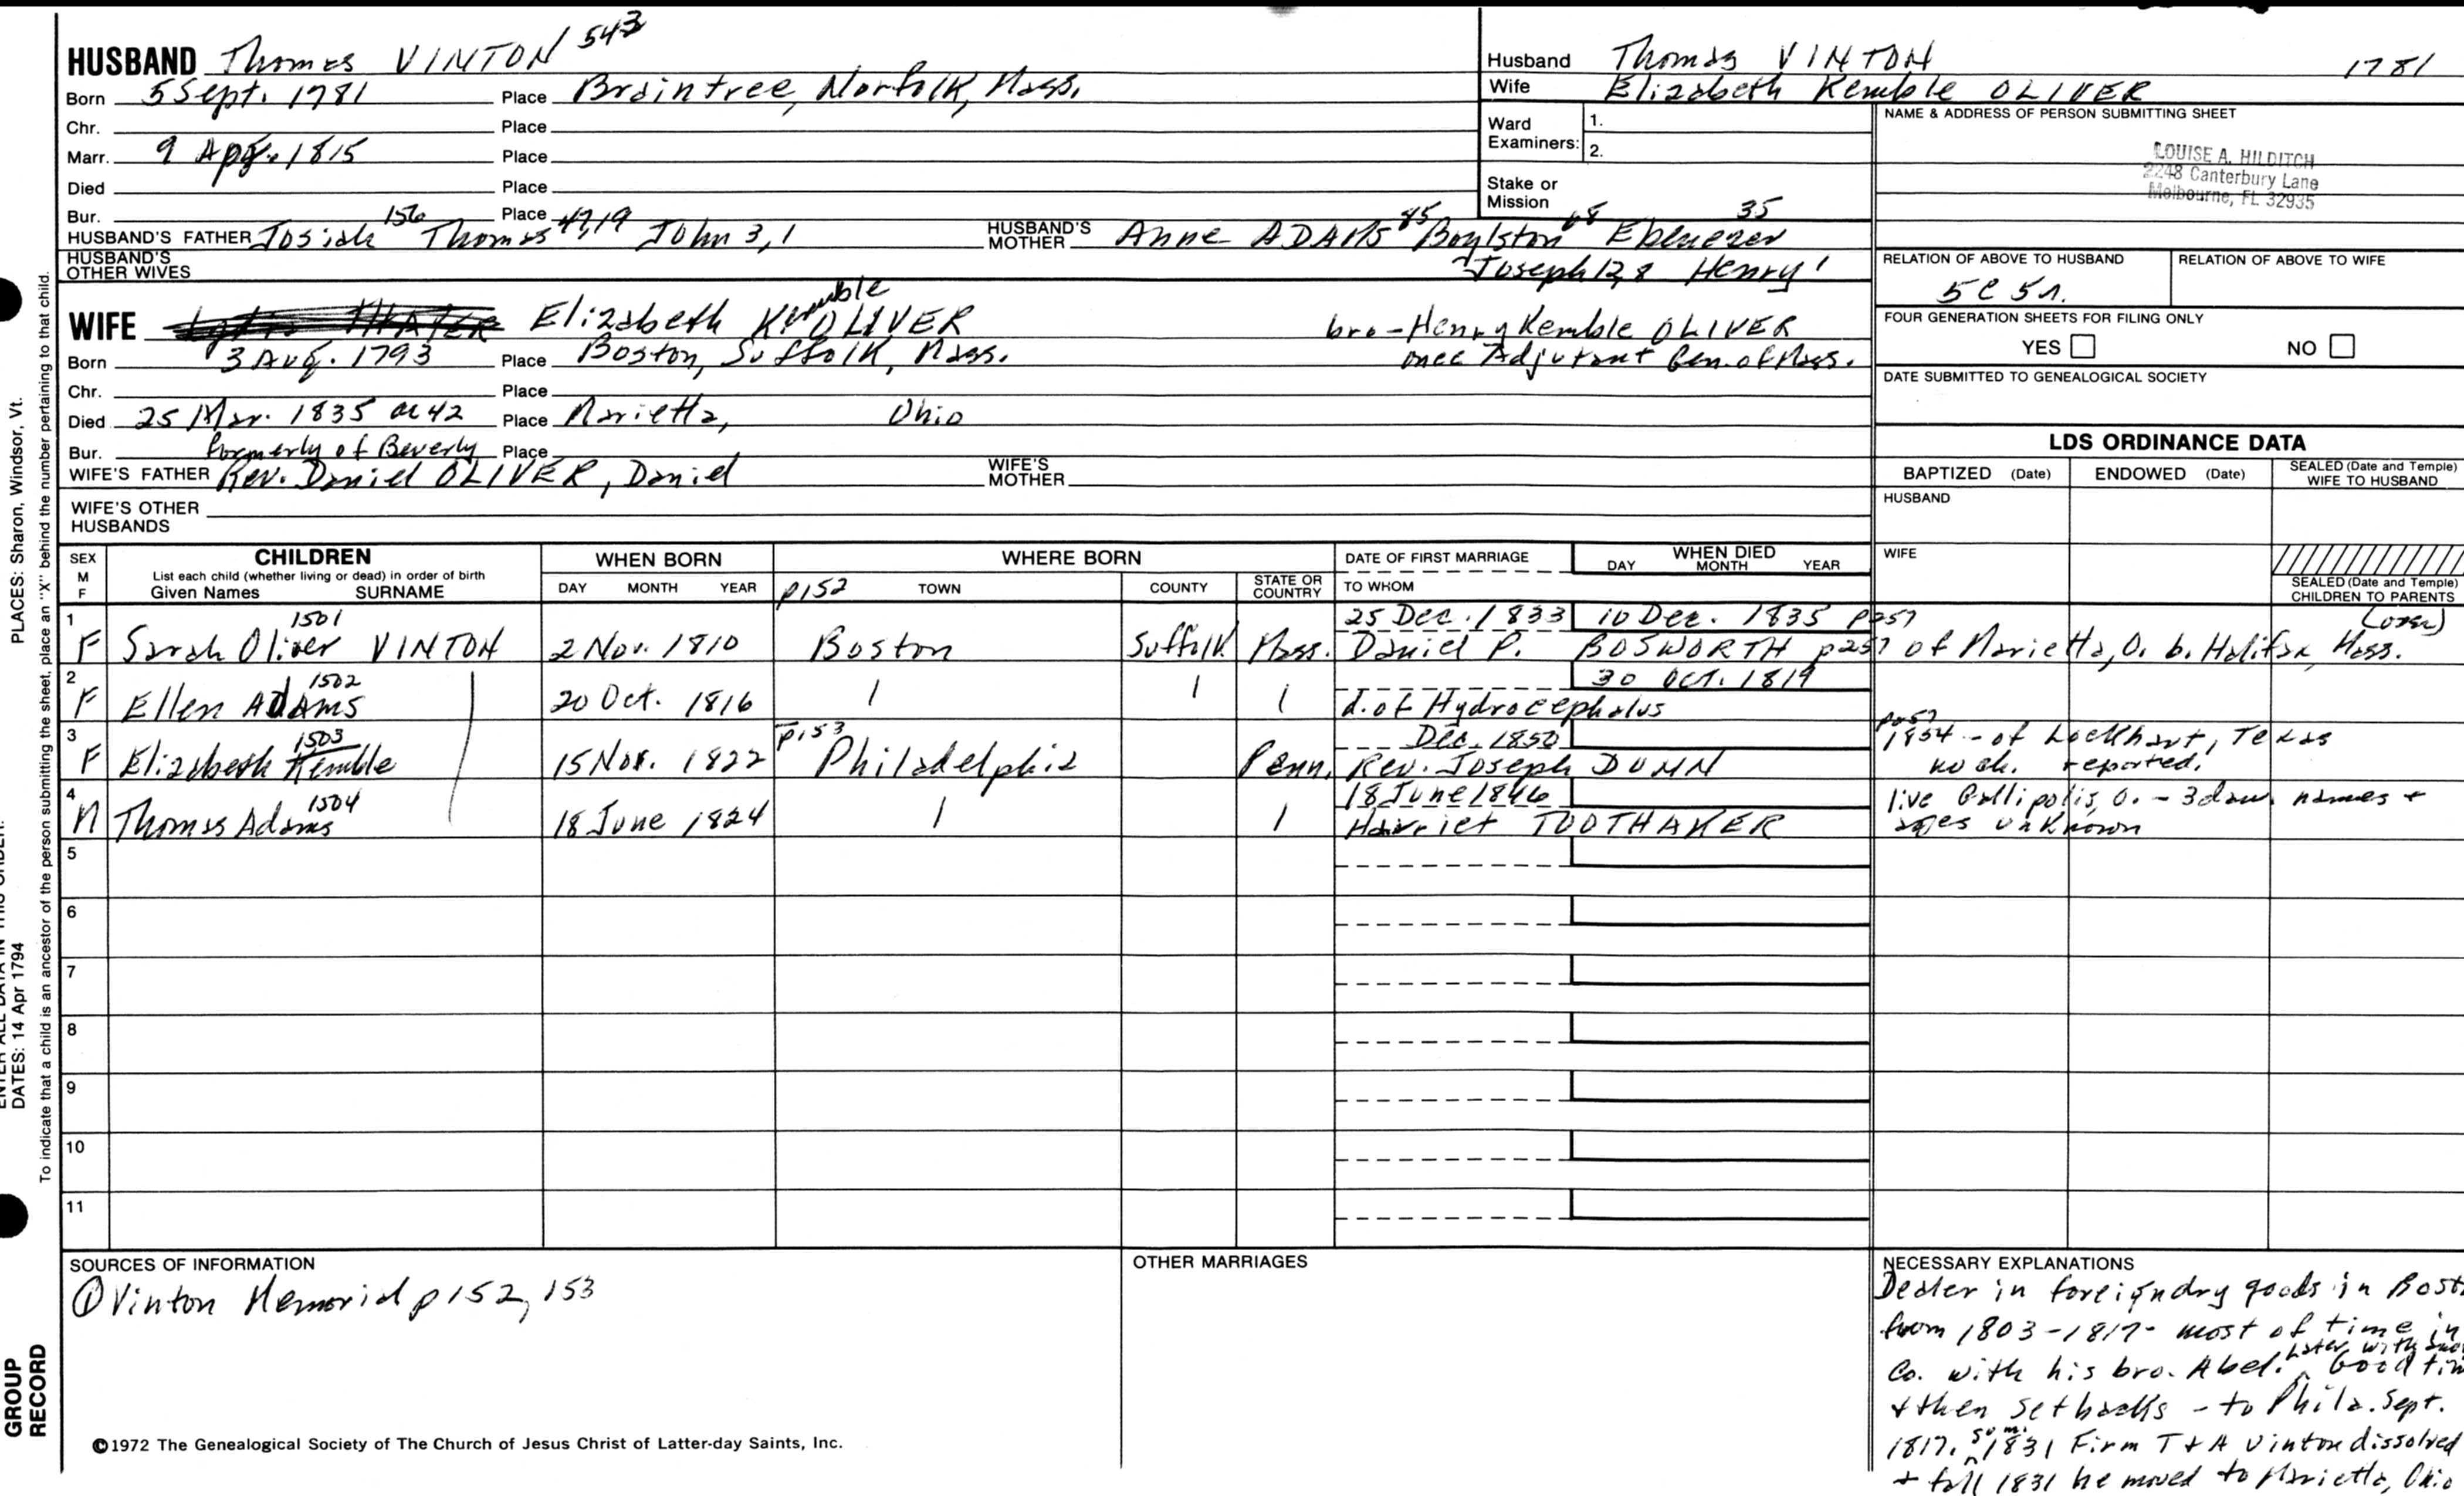 HUSBAND Thomas VINTON 543
Born 5 Sept. 1781 Place Braintree, Norfolk, Mass.
Chr. Place
Marr. 9 Apr. 1815 Place
Died Place
Bur. Place
HUSBAND'S FATHER Josiah 156 Thomas 47,19 John 3,1 HUSBAND'S MOTHER Anne ADAMS 85 Boylston 68 Ebenezer 35
HUSBAND'S OTHER WIVES Joseph 12,8 Henry 1
WIFE Elizabeth Kemble OLIVER bro-Henry Kemble OLIVER
Born 3 Aug. 1793 Place Boston, Suffolk, Mass. once Adjutant Gen. of Mass.
Chr. Place
Died 25 Mar. 1835 ae 42 Place Marietta, Ohio
Bur. formerly of Beverly Place
WIFE'S FATHER Rev. Daniel OLIVER, Daniel WIFE'S MOTHER
WIFE'S OTHER HUSBANDS
Husband Thomas VINTON 1781
Wife Elizabeth Kemble OLIVER
Ward Examiners: 1.
2.
Stake or Mission
NAME & ADDRESS OF PERSON SUBMITTING SHEET
LOUISE A. HILDITCH
2248 Canterbury Lane
Melbourne, FL 32935
RELATION OF ABOVE TO HUSBAND RELATION OF ABOVE TO WIFE
5C 5r.
FOUR GENERATION SHEETS FOR FILING ONLY
YES NO
DATE SUBMITTED TO GENEALOGICAL SOCIETY
LDS ORDINANCE DATA
BAPTIZED (Date) ENDOWED (Date) SEALED (Date and Temple) WIFE TO HUSBAND
HUSBAND
WIFE
SEALED (Date and Temple) CHILDREN TO PARENTS
SEX M F
CHILDREN
List each child (whether living or dead) in order of birth
Given Names SURNAME
WHEN BORN
DAY MONTH YEAR
WHERE BORN
p152 TOWN COUNTY STATE OR COUNTRY
DATE OF FIRST MARRIAGE
TO WHOM
WHEN DIED
DAY MONTH YEAR
1 1501 25 Dec. 1833 10 Dec. 1835 p257 (over)
F Sarah Oliver VINTON 2 Nov. 1810 Boston Suffolk Mass. Daniel P. BOSWORTH p257 of Marietta, O. b. Halifax, Mass.
2 1502 30 Oct. 1819
F Ellen ADAMS 20 Oct. 1816 d. of Hydrocephalus
3 1503 p153 Dec. 1850 p257 1854 - of Lockhart, Texas
F Elizabeth Kemble 15 Nov. 1822 Philadelphia Penn. Rev. Joseph DUNN no ch. reported.
4 1504 18 June 1846 live Gallipolis, O. - 3 dau. names +
M Thomas Adams 18 June 1824 Harriet TOOTHAKER ages unknown
5
6
7
8
9
10
11
SOURCES OF INFORMATION
① Vinton Memorial p 152, 153
OTHER MARRIAGES
NECESSARY EXPLANATIONS
Dealer in foreign dry goods in Bost
from 1803-1817- most of time in
Co. with his bro. Abel. Later with Good tim
+ then setbacks - to Phila. Sept.
1817. sum. 1831 Firm T + A Vinton dissolved
+ fall 1831 he moved to Marietta, Ohio
©1972 The Genealogical Society of The Church of Jesus Christ of Latter-day Saints, Inc.
PLACES: Sharon, Windsor, Vt.
DATES: 14 Apr 1794
To indicate that a child is an ancestor of the person submitting the sheet, place an "X" behind the number pertaining to that child.
GROUP
RECORD